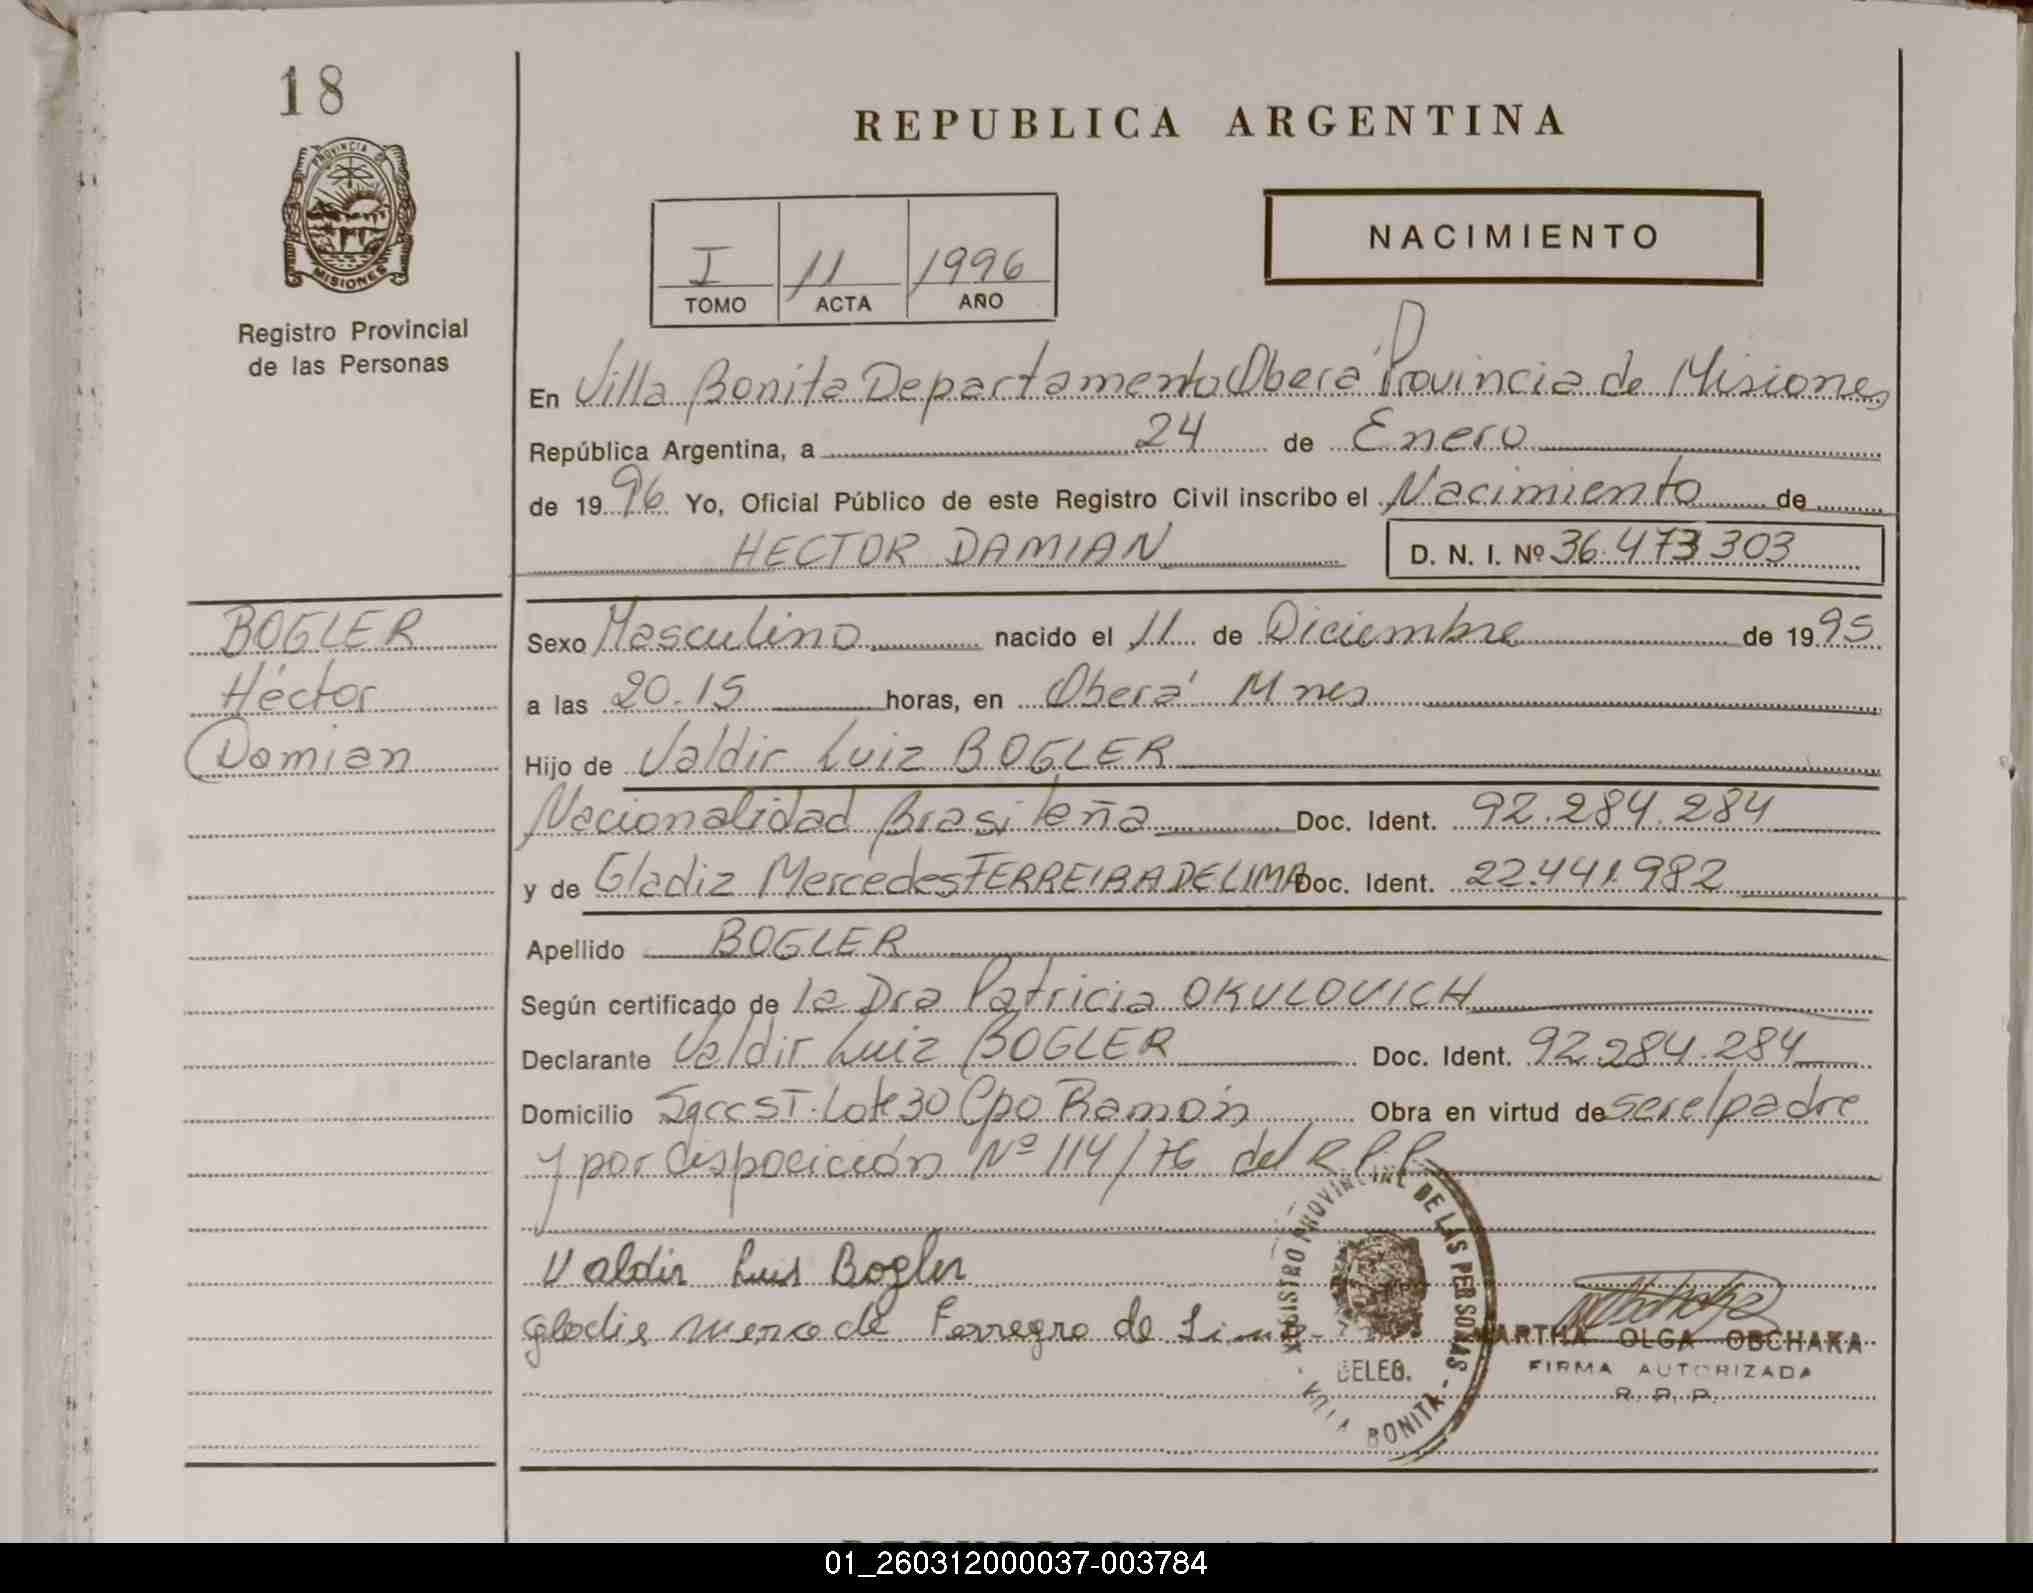 18
PROVINCIA DE
MISIONES
Registro Provincial
de las Personas
REPUBLICA ARGENTINA
I 11 1996
TOMO ACTA AÑO
NACIMIENTO
En Villa Bonita Departamento Oberá Provincia de Misiones
República Argentina, a 24 de Enero
de 1996 Yo, Oficial Público de este Registro Civil inscribo el Nacimiento de
HECTOR DAMIAN D. N. I. Nº 36.473303
BOGLER
Héctor
Damian
Sexo Masculino nacido el 11 de Diciembre de 1995
a las 20.15 horas, en Oberá Mnes
Hijo de Valdir Luiz BOGLER
Nacionalidad Brasileña Doc. Ident. 92.284.284
y de Gladiz Mercedes FERREIRA DE LIMA Doc. Ident. 22.441.982
Apellido BOGLER
Según certificado de la Dra Patricia OKULOVICH
Declarante Valdir Luiz BOGLER Doc. Ident. 92.284.284
Domicilio Lote 30 Cpo Ramón Obra en virtud de ser el padre
y por disposición Nº 114/76 del R.P.P.
Valdir Luis Bogler
de Lima
REGISTRO PROVINCIAL DE LAS PERSONAS
DELEG.
- VILLA BONITA -
MARTHA OLGA OBCHAKA
FIRMA AUTORIZADA
R. P. P.
01_260312000037-003784